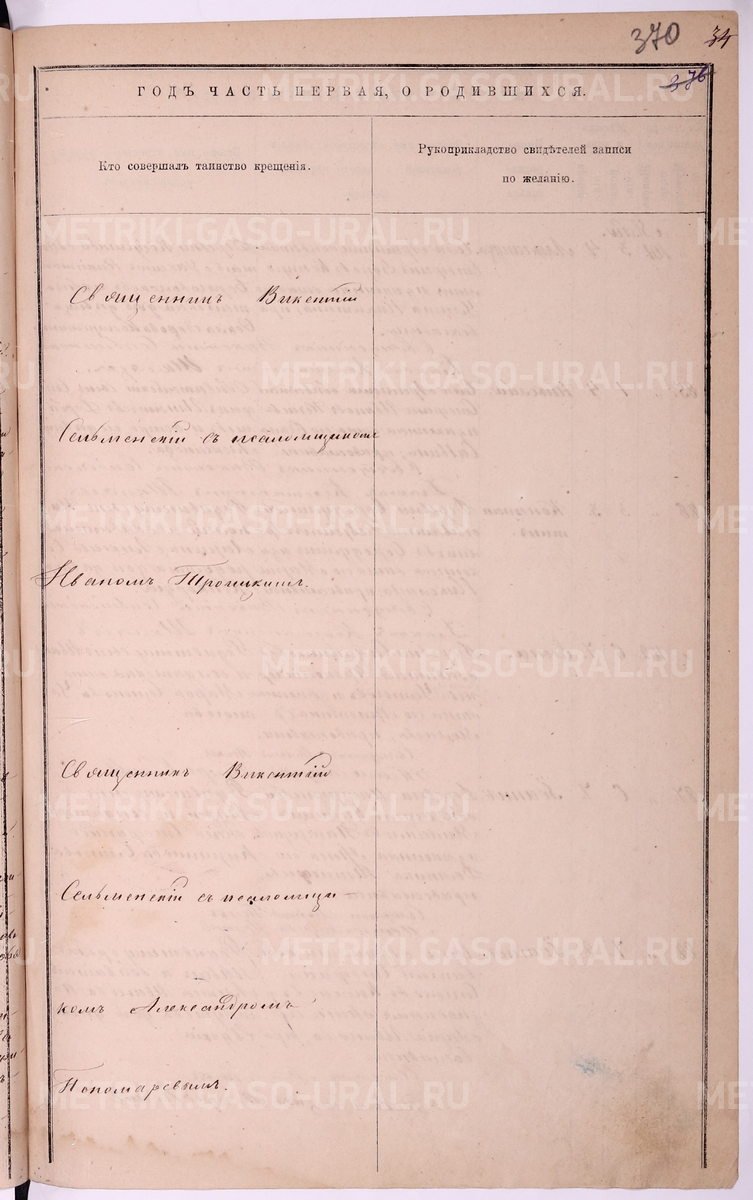 370 34
376
ГОДЪ ЧАСТЬ ПЕРВАЯ, О РОДИВШИХСЯ.
Кто совершалъ таинство крещенія.
Рукоприкладство свидѣтелей записи
по желанію.
Священникъ Викентій
Сельменскій съ псаломщикомъ
Иваномъ Троицкимъ.
Священникъ Викентій
Сельменскій съ псаломщи-
комъ Александромъ
Пономаревымъ.
METRIKI.GASO-URAL.RU